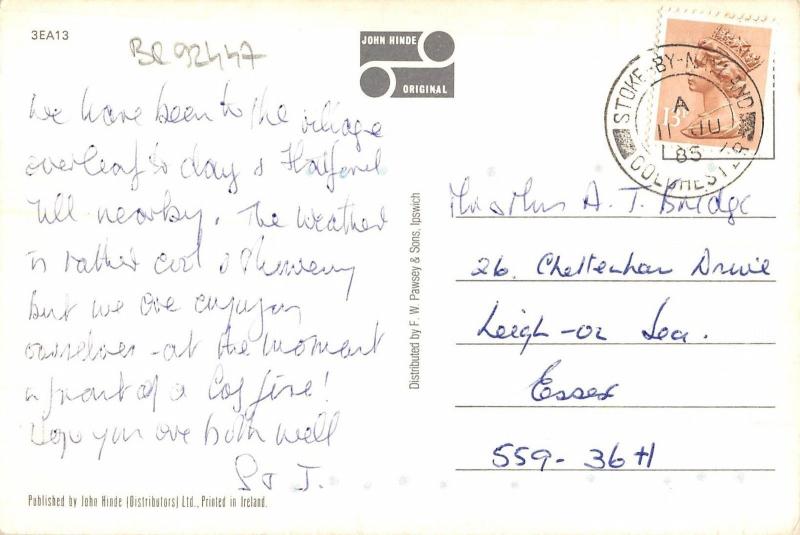 3EA13
BR 92447
JOHN HINDE
ORIGINAL
STOKE-BY-NAYLAND
A
11 JU
85
COLCHESTER
13P
We have been to the village
overleaf to day & Flatford
Mill nearby. The weather
is rather cool & showery
but we are enjoying
ourselves - at the moment
in front of a log fire!
Hope you are both well
J.
Mr & Mrs A. T. Bridge
26. Cheltenham Drive
Leigh-on Sea.
Essex
559-36H
Distributed by F. W. Pawsey & Sons, Ipswich
Published by John Hinde (Distributors) Ltd., Printed in Ireland.